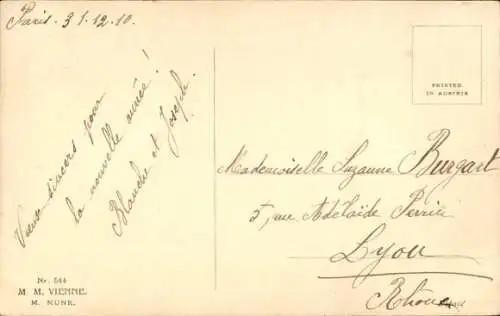 Paris. 31.12.10.
Vœux sincères pour
la nouvelle année!
Blanche et Joseph.
PRINTED
IN AUSTRIA
Mademoiselle Suzanne Burgart
5, rue Adélaïde Perrin
Lyon
Rhône
Nr. 544
M. M. VIENNE.
M. MUNK.